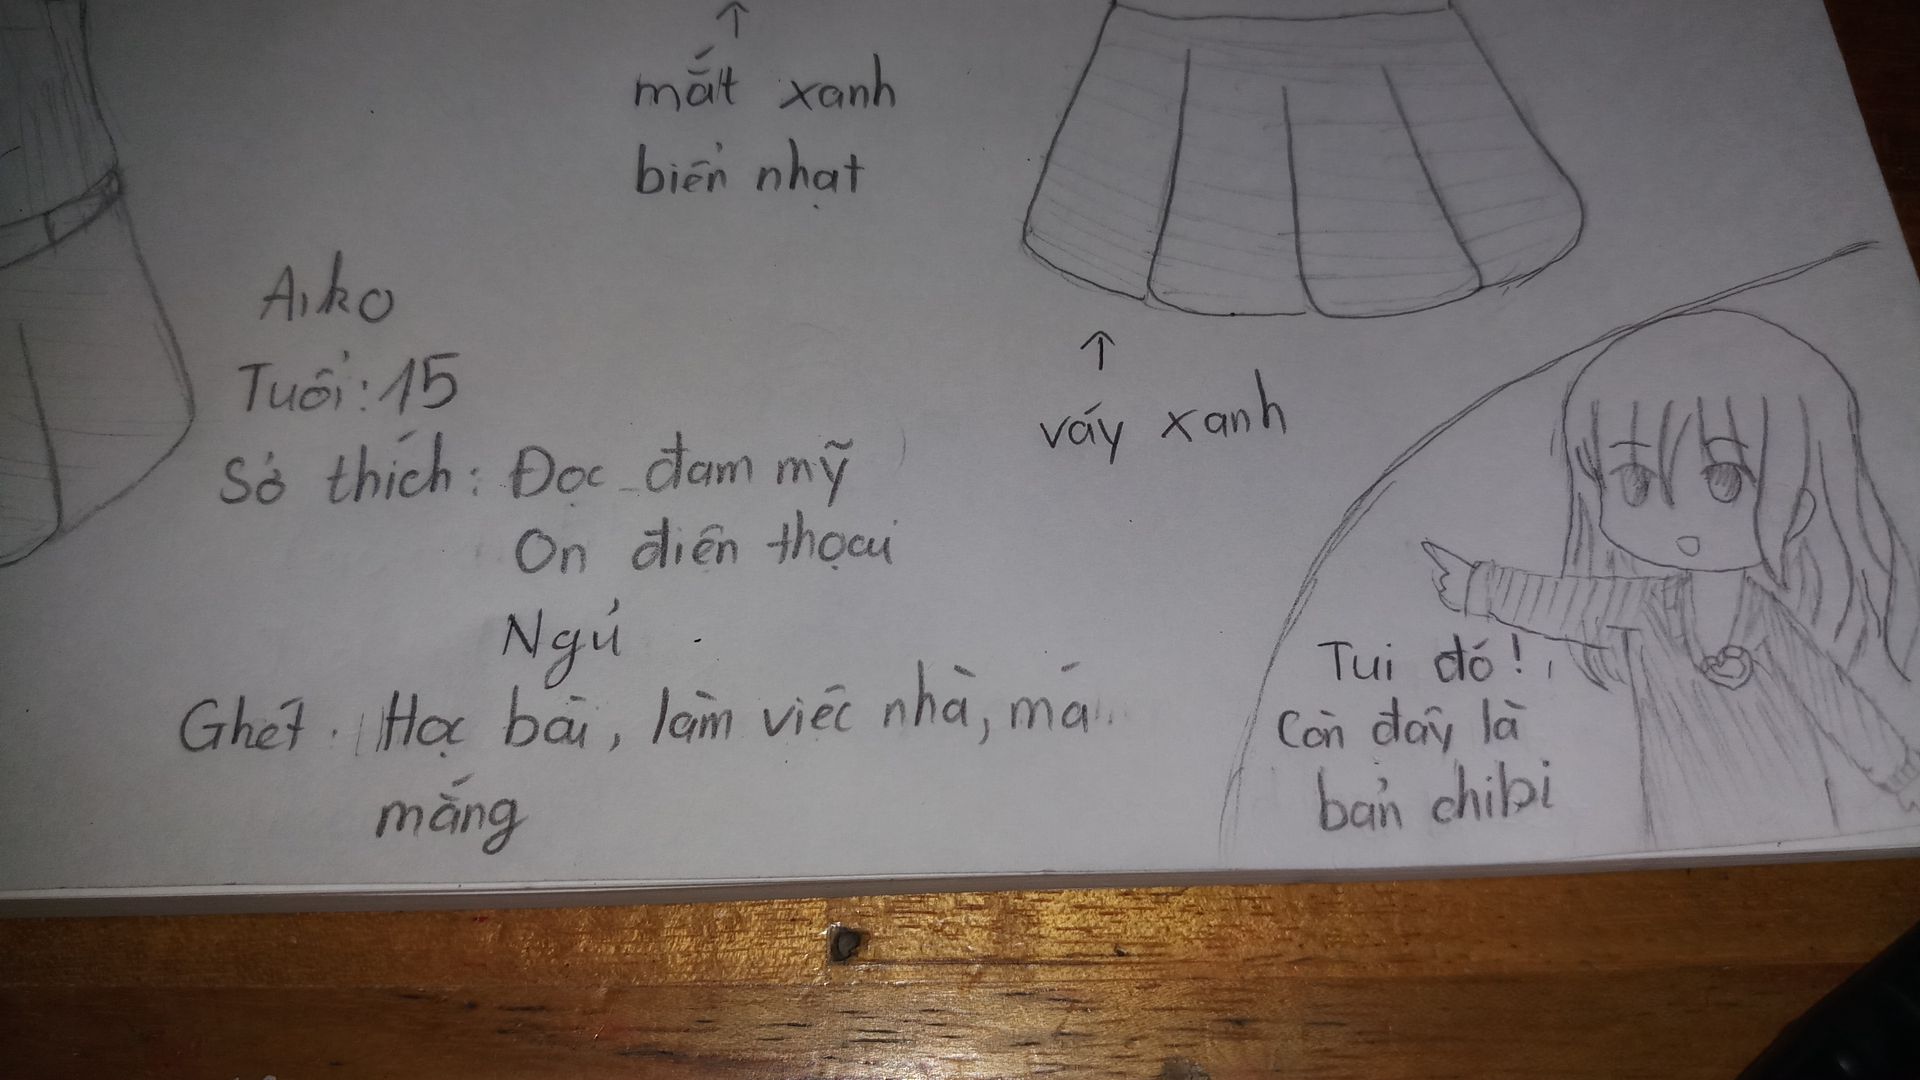 mắt xanh
biển nhạt
Aiko
Tuổi: 15
Sở thích: Đọc đam mỹ
On điện thoại
Ngủ
Ghét: Học bài, làm việc nhà, má
mắng
váy xanh
Tui đó!
Còn đây là
bản chibi